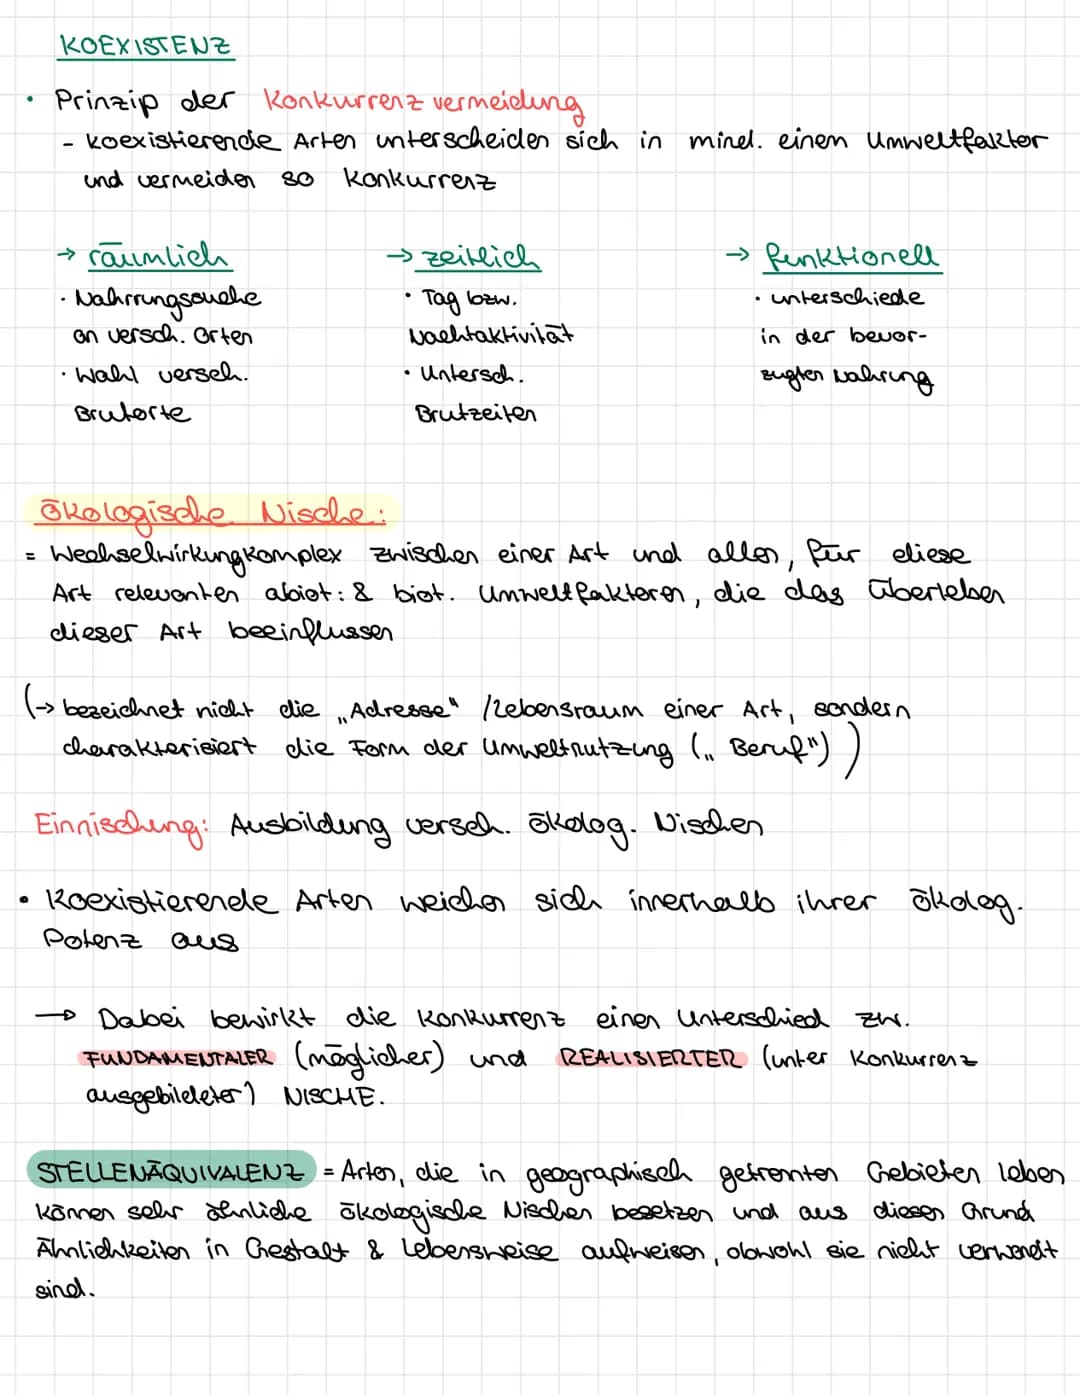 KOEXISTENZ
• Prinzip der Konkurrenzvermeidung
- koexistierende Arten unterscheiden sich in mind. einem Umweltfaktor
und vermeiden so Konkurrenz
→ räumlich
· Nahrrungssuche
an versch. Orten
· Wahl versch.
Brutorte
→ zeitlich
· Tag bzw.
Nachtaktivität
· Untersch.
Brutzeiten
→ funktionell
· unterschiede
in der bevor-
zugten Nahrung
Ökologische Nische:
= Wechselwirkungkomplex zwischen einer Art und allen, für diese
Art relevanten abiot. & biot. Umweltfaktoren, die das Überleben
dieser Art beeinflussen
(→ bezeichnet nicht die „Adresse“ /Lebensraum einer Art, sondern
charakterisiert die Form der Umweltnutzung („Beruf“))
Einnischung: Ausbildung versch. ökolog. Nischen
• Koexistierende Arten weichen sich innerhalb ihrer ökolog.
Potenz aus
→ Dabei bewirkt die Konkurrenz einen Unterschied zw.
FUNDAMENTALER (möglicher) und REALISIERTER (unter Konkurrenz
ausgebildeter) NISCHE.
STELLENÄQUIVALENZ = Arten, die in geographisch getrennten Gebieten leben
können sehr ähnliche ökologische Nischen besetzen und aus diesen Grund
Ähnlichkeiten in Gestalt & Lebensweise aufweisen, obwohl sie nicht verwandt
sind.